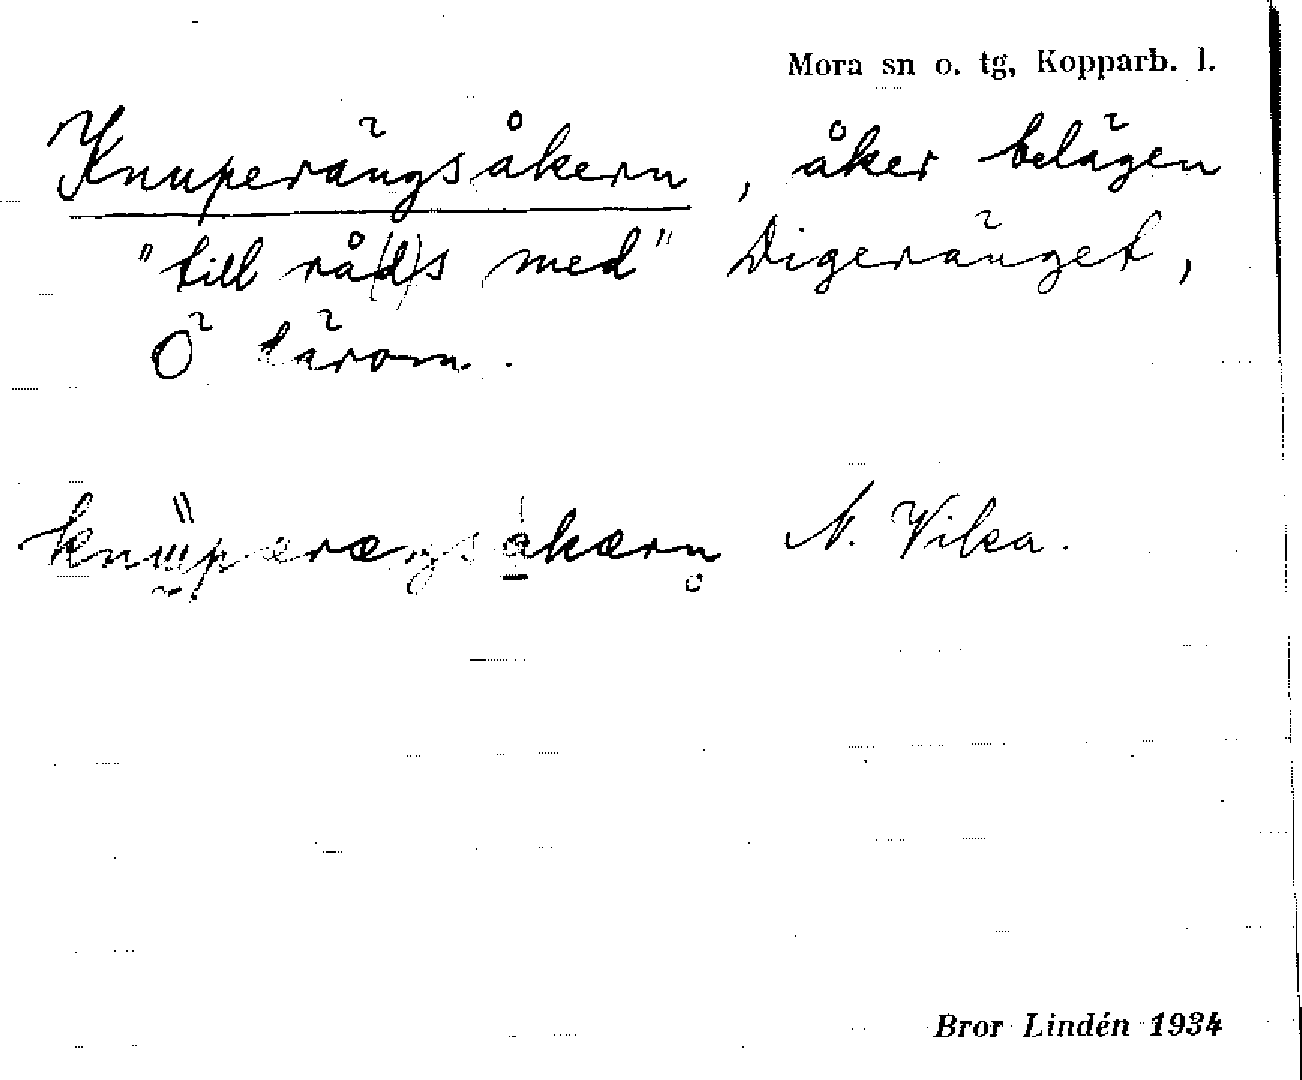 Mora sn o. tg, Kopparb. l.
Knuperängsåkern, åker belägen
"till rå(d)s med" Digeränget,
Ö därom.
N. Vika.
Bror Lindén 1934